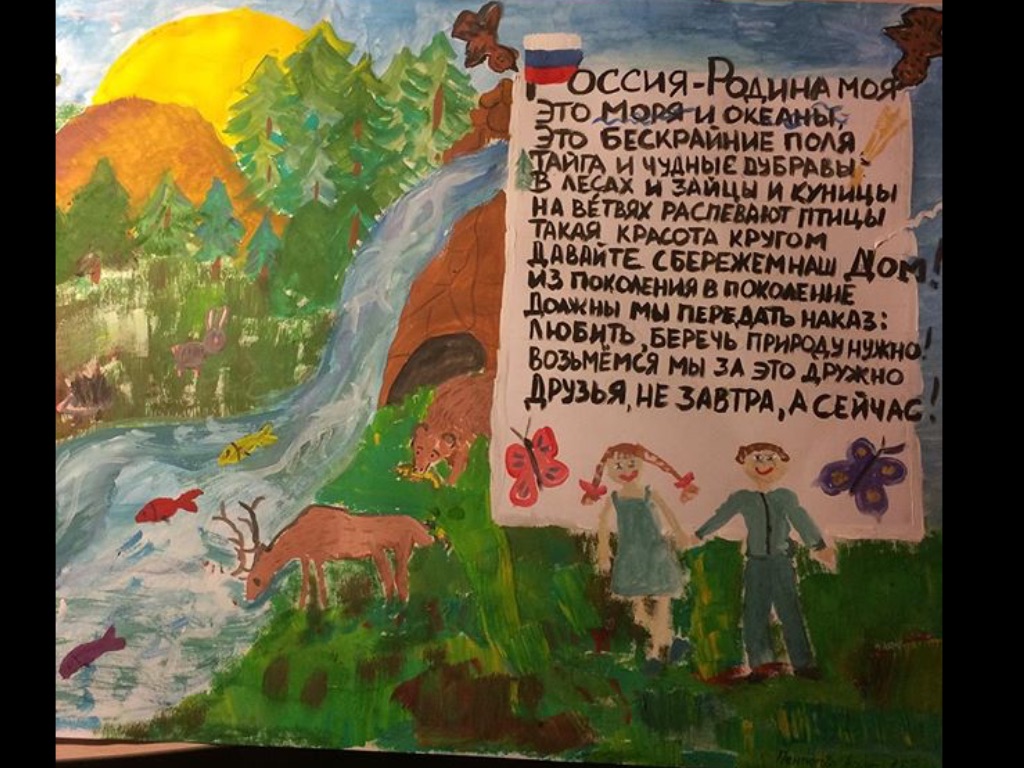 РОССИЯ-РОДИНА МОЯ
ЭТО МОРЯ И ОКЕАНЫ,
ЭТО БЕСКРАЙНИЕ ПОЛЯ
ТАЙГА И ЧУДНЫЕ ДУБРАВЫ.
В ЛЕСАХ И ЗАЙЦЫ И КУНИЦЫ
НА ВЕТВЯХ РАСПЕВАЮТ ПТИЦЫ
ТАКАЯ КРАСОТА КРУГОМ
ДАВАЙТЕ СБЕРЕЖЕМ НАШ ДОМ!
ИЗ ПОКОЛЕНИЯ В ПОКОЛЕНИЕ
ДОЛЖНЫ МЫ ПЕРЕДАТЬ НАКАЗ:
ЛЮБИТЬ, БЕРЕЧЬ ПРИРОДУ НУЖНО!
ВОЗЬМЁМСЯ МЫ ЗА ЭТО ДРУЖНО
ДРУЗЬЯ, НЕ ЗАВТРА, А СЕЙЧАС!